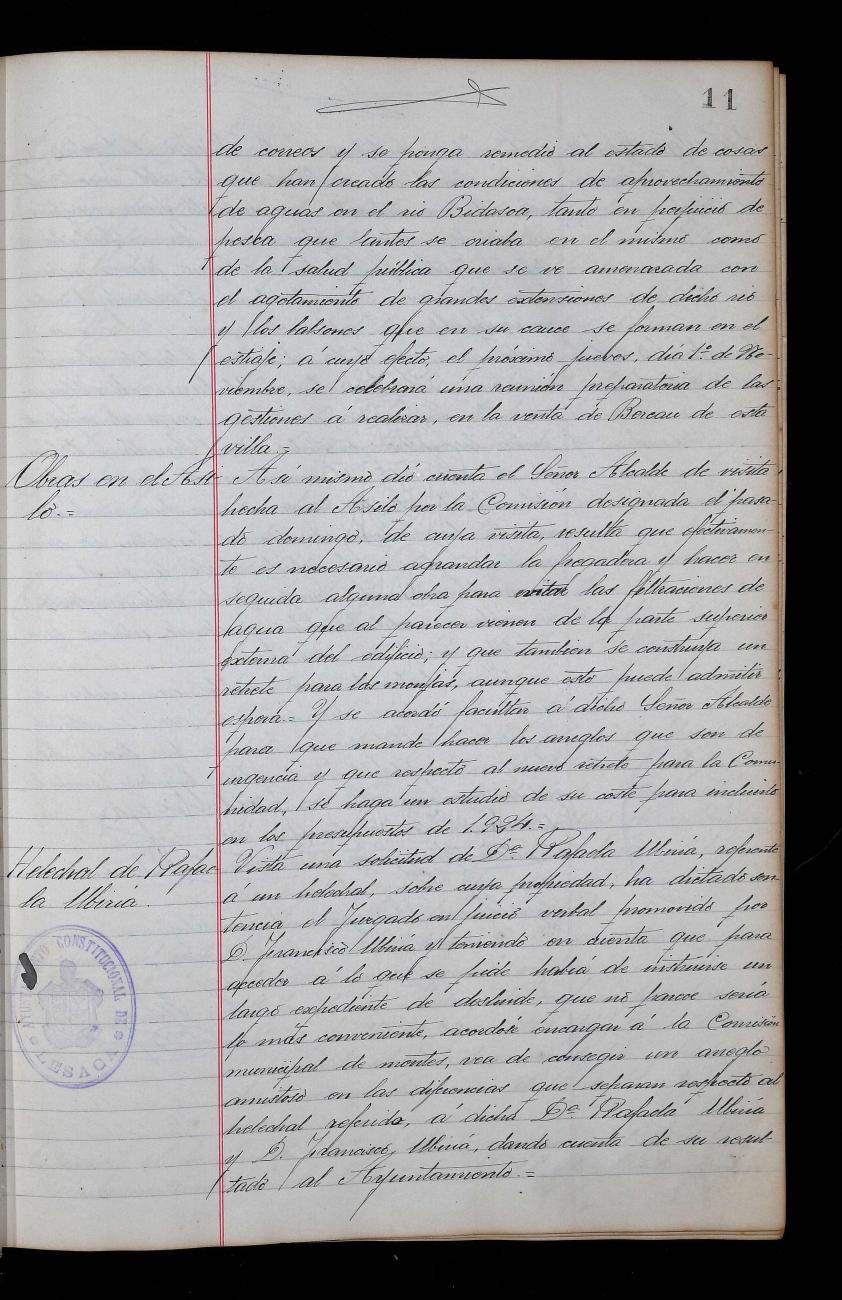 11
de correos y se ponga remedio al estado de cosas
que han creado las condiciones de aprovechamiento
de aguas en el rio Bidasoa, tanto en perjuicio de
pesca que antes se criaba en el mismo como
de la salud pública que se ve amenazada con
el agotamiento de grandes extensiones de dicho rio
y los balsones que en su cauce se forman en el
estiaje; á cuyo efecto, el próximo jueves, día 1º de No-
viembre, se celebrará una reunión preparatoria de las
gestiones á realizar, en la venta de Bereau de esta
villa.=
Obras en el Asi-
lo.=
Asi mismo dió cuenta el Señor Alcalde de visita
hecha al Asilo por la Comisión designada el pasa-
do domingo, de cuya visita, resulta que efectivamen-
te es necesario agrandar la fregadera y hacer en
seguida alguna obra para evitar las filtraciones de
agua que al parecer vienen de la parte superior
externa del edificio; y que tambien se construya un
retrete para las monjas, aunque esto puede admitir
espera.= Y se acordó facultar á dicho Señor Alcalde
para que mande hacer los arreglos que son de
urgencia y que respecto al nuevo retrete para la Comu-
nidad, se haga un estudio de su coste para incluirlo
en los presupuestos de 1.924.=
Helechal de Rafae-
la Ubiria.
Vista una solicitud de Dª Rafaela Ubiria, referente
á un helechal, sobre cuya propiedad, ha dictado sen-
tencia el Juzgado en juicio verbal promovido por
D. Francisco Ubiria y teniendo en cuenta que para
acceder á lo que se pide habia de instruirse un
largo expediente de deslinde, que no parece seria
lo más conveniente, acordóse encargar á la Comisión
municipal de montes, vea de consegir un arreglo
amistoso en las diferencias que separan respecto al
helechal referido, á dicha Dª Rafaela Ubiria
y D. Francisco Ubiria, dando cuenta de su resul-
tado al Ayuntamiento.=
AYUNTAMIENTO CONSTITUCIONAL DE
LESACA